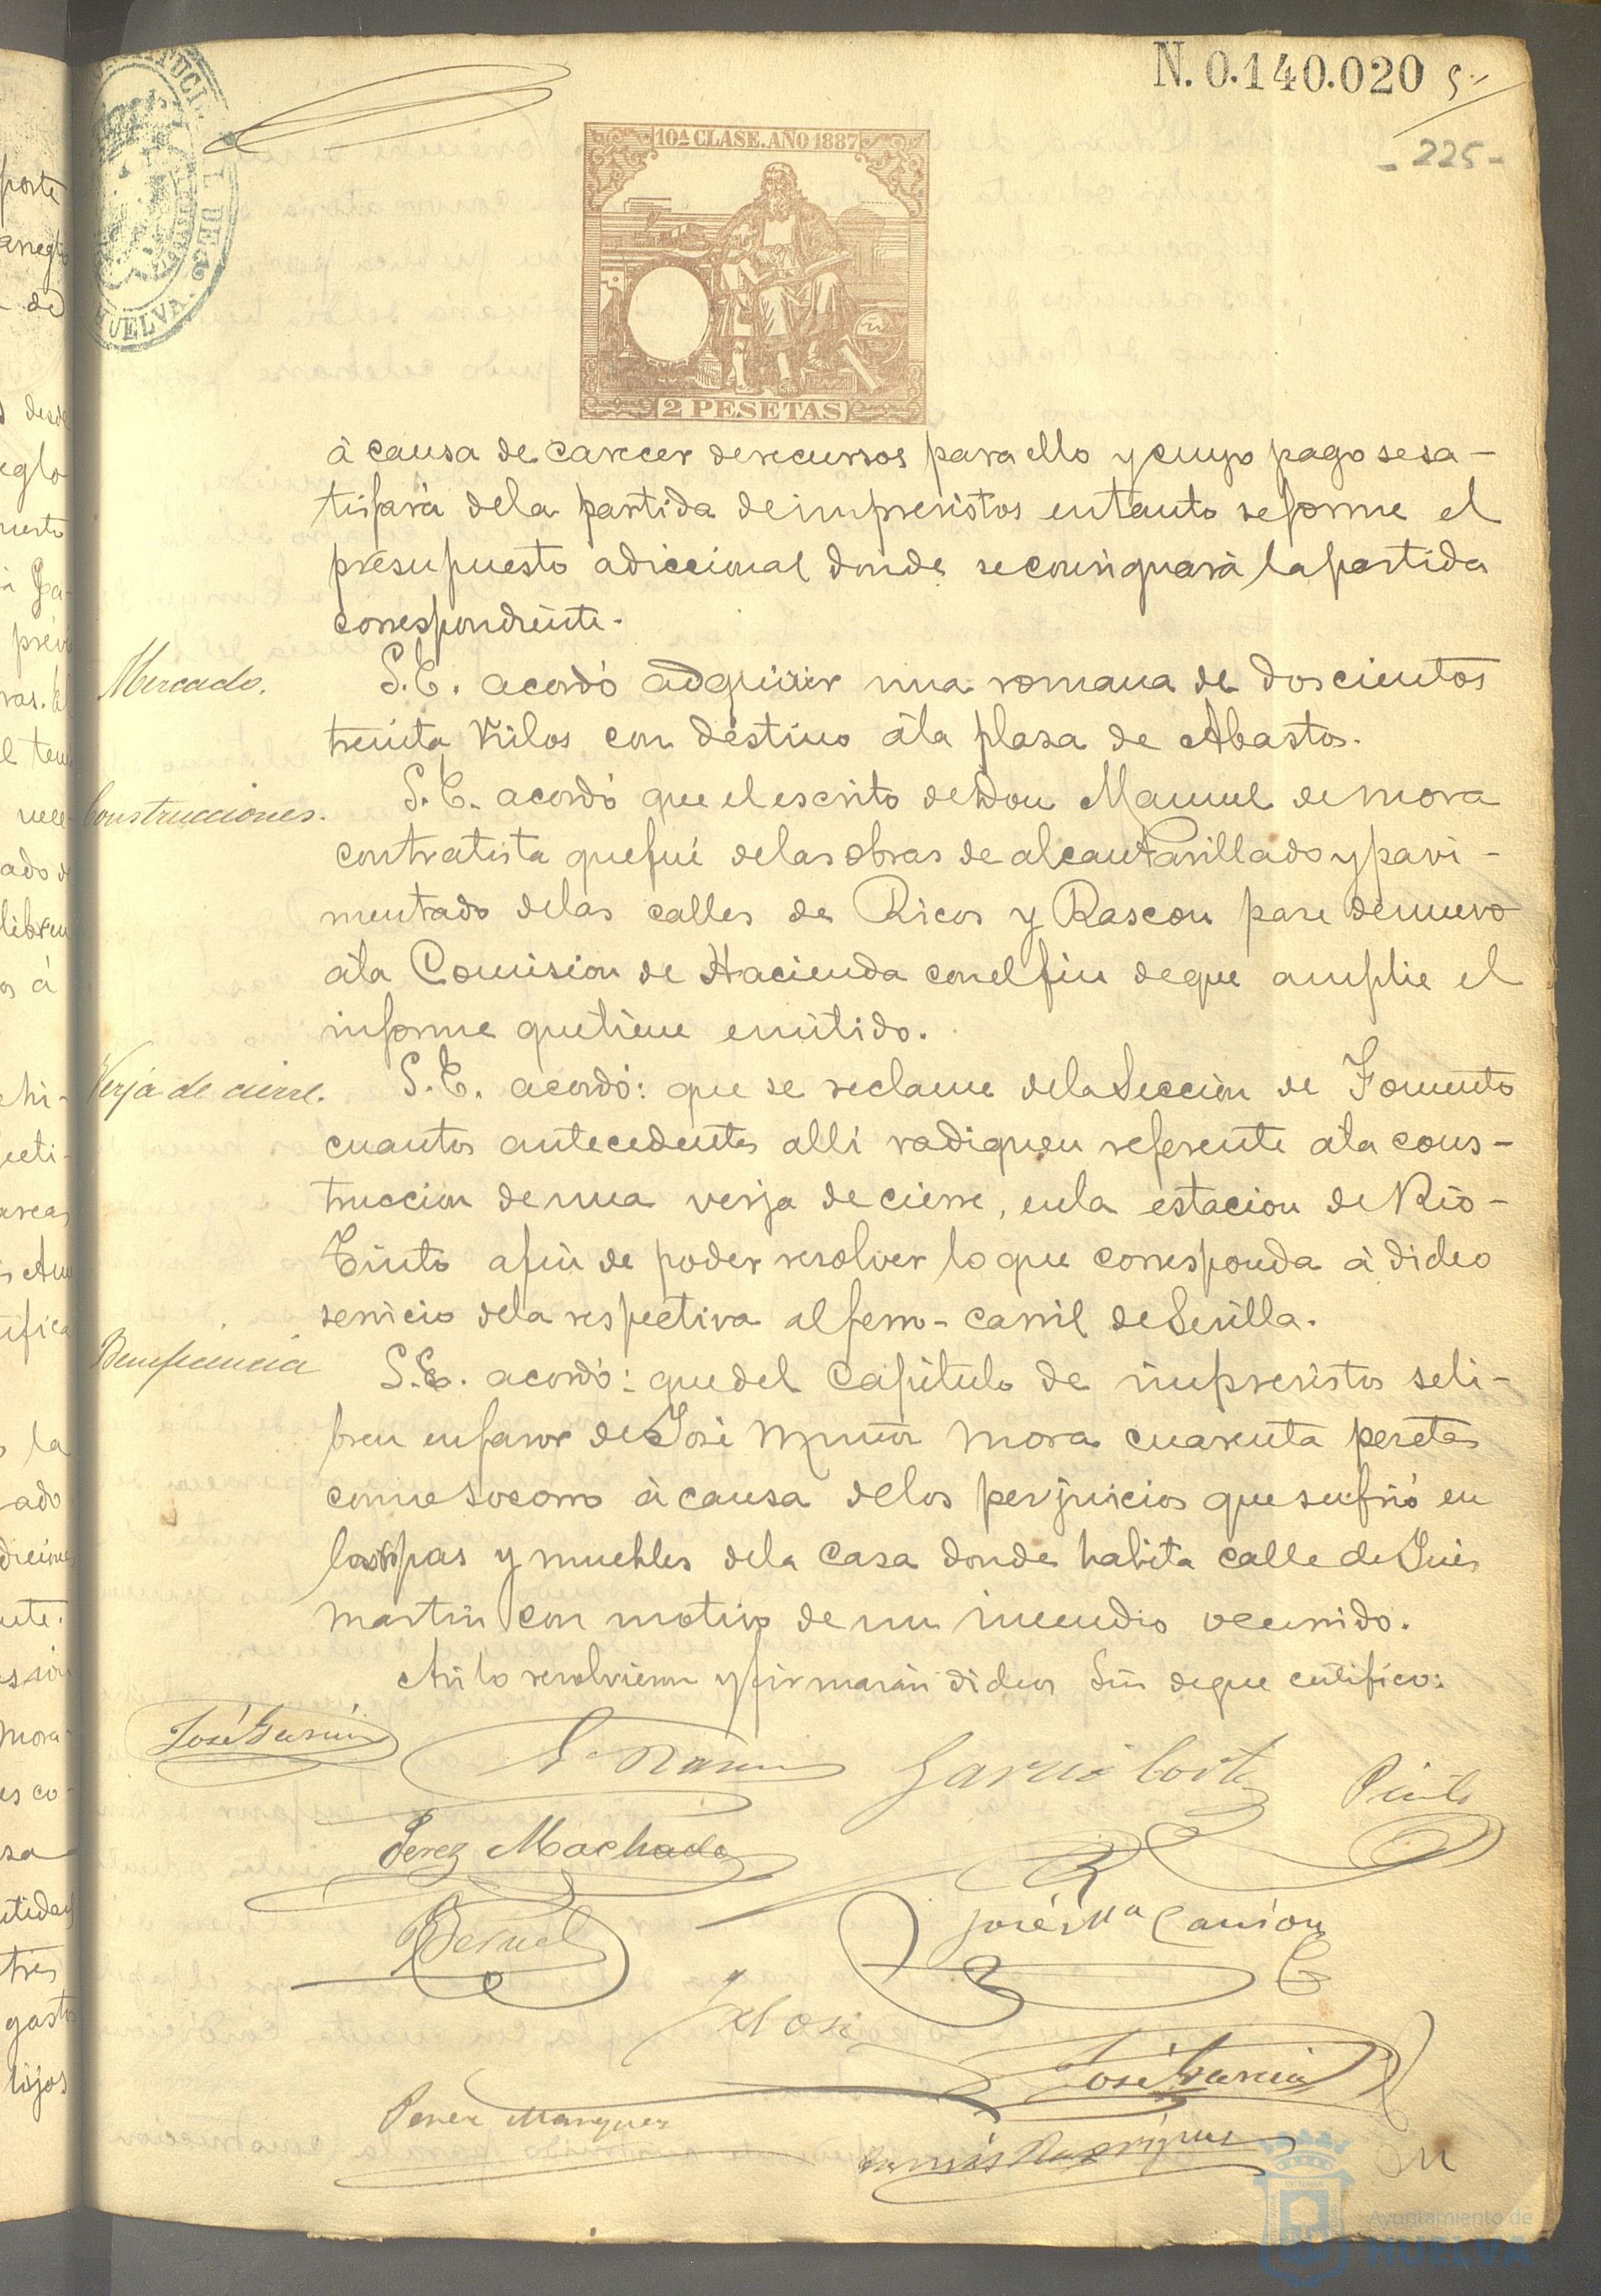 N. 0.140.020
5
- 225 -
HUELVA.
10ª CLASE. AÑO 1887
2 PESETAS
à causa de carecer de recursos para ello y cuyo pago se sa-
tisfará de la partida de imprevistos en tanto se forme el
presupuesto adiccional donde se consignará la partida
correspondiente.
Mercado.
S.E. acordó adquirir una romana de doscientos
treinta kilos con destino á la plasa de Abastos.
Construcciones.
S.E. acordó que el escrito de Don Manuel de Mora
contratista que fué de las obras de alcantarillado y pavi-
mentado de las calles de Ricos y Rascon pase de nuevo
á la Comision de Hacienda con el fin de que amplie el
informe que tiene emitido.
Verja de cierre.
S.E. acordó: que se reclame de la Sección de Fomento
cuantos antecedentes allí radiquen referente á la cons-
truccion de una verja de cierre, en la estacion de Rio-
Tinto a fin de poder resolver lo que corresponda à dicho
servicio de la respectiva al ferro-carril de Sevilla.
Beneficencia
S.E. acordó: que del Capítulo de imprevistos se li-
bren en favor de José Muñoz Mora cuarenta pesetas
como socorro à causa de los perjuicios que sufrió en
las ropas y muebles de la casa donde habita calle de Ginés
Martín con motivo de un incendio ocurrido.
Así lo resolvieron y firmarán dichos Sres de que certifico:
José García
García Cortes
Pinto
Perez Machado
Bernel
José Mª Carrion
José García
Perez Marquez
Rodriguez
Ayuntamiento de
HUELVA